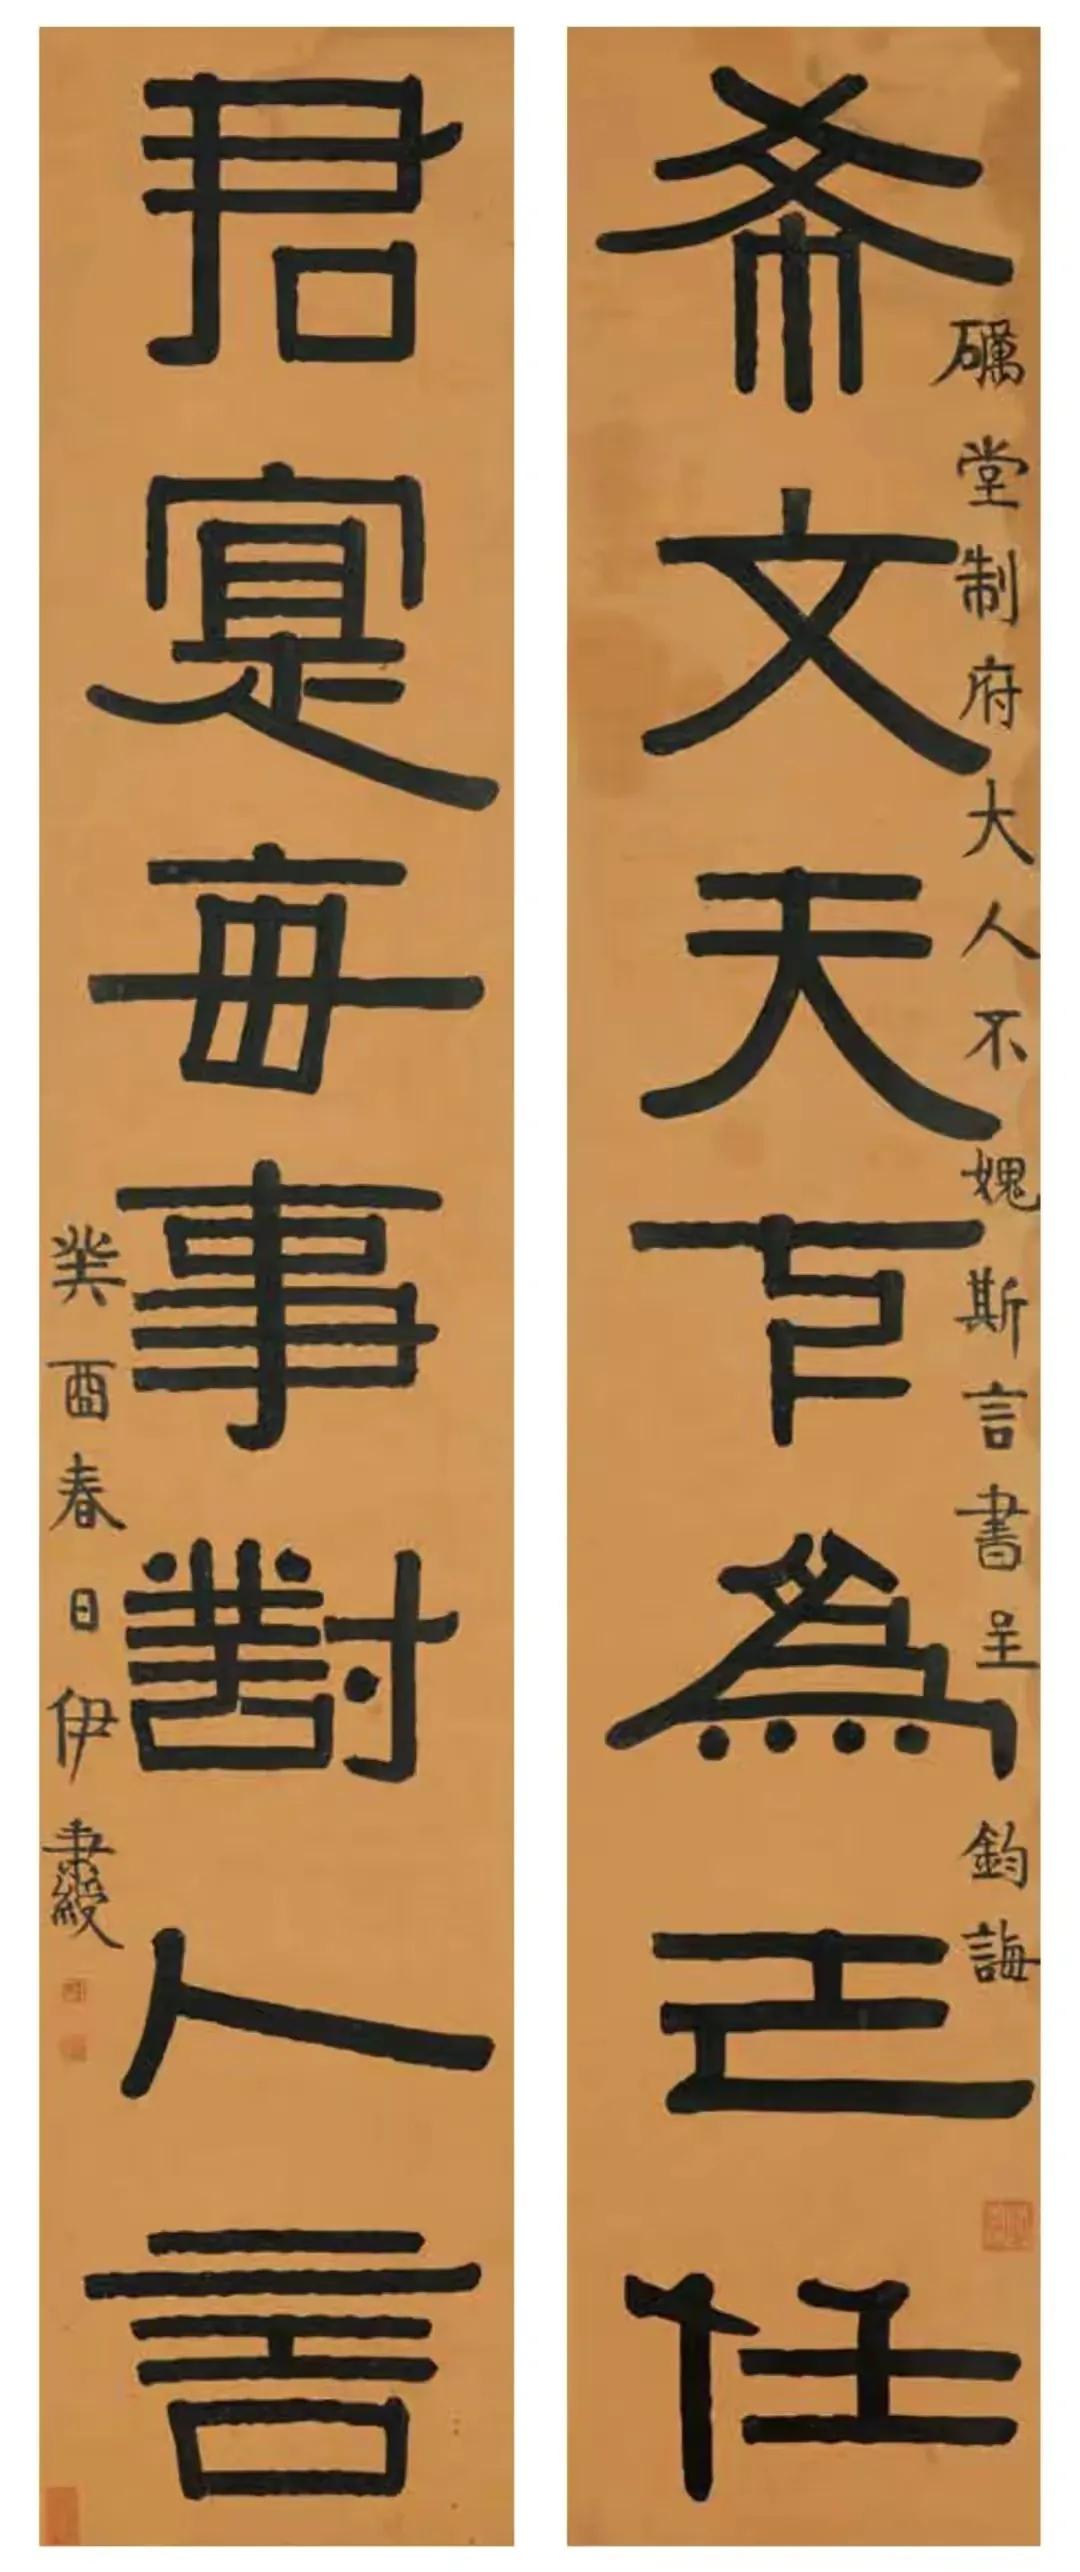 礪堂制府大人不媿斯言書呈鈞誨
希文天下為己任
君寔每事對人言
癸酉春日伊秉綬